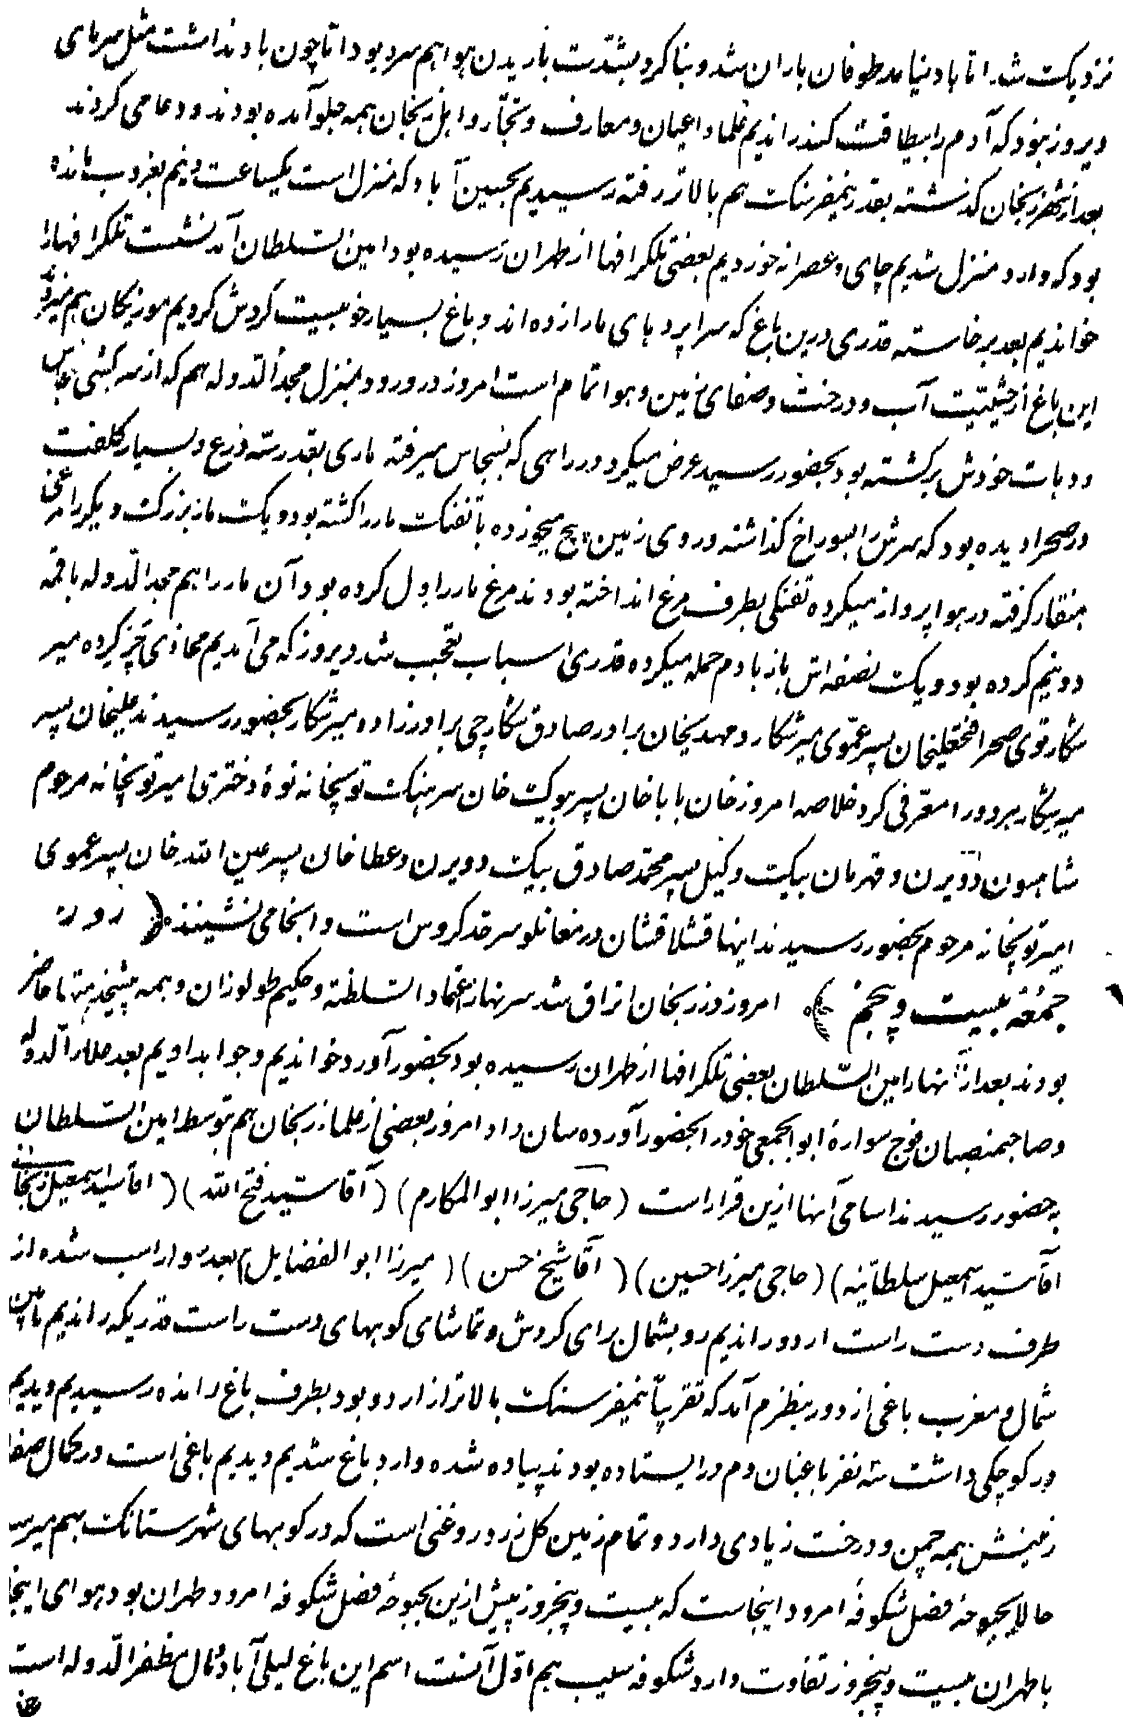 نزدیک شد اتا باد نیامد طوفان باران شد و بنا کرد بشدّت باریدن هوا هم سرد بود امّا چون باد نداشت مثل سرمای
دیروز نبود که آدم را بیطاقت کند راندیم علما و اعیان و معارف و تجّار و اهل زنجان همه جلو آمده بودند و دعا می کردند
بعد از شهر زنجان گذشته بقدر نیمفرسنگ هم بالاتر رفته رسیدیم بحسین آباد که منزل است یکساعت و نیم بغروب مانده
بود که وارد منزل شدیم چای و عصرانه خوردیم بعضی تلگرافها از طهران رسیده بود امین السّلطان آمد نشست تلگرافها را
خواندیم بعد برخاسته قدری در این باغ که سراپرده های ما را زده اند و باغ بسیار خوبیست گردش کردیم موزیکان هم میزدند
این باغ از حیثیّت آب و درخت و صفای زمین و هوا تمام است امروز در ورود بمنزل مجدالدّوله هم که از سرکشی
و دهات خودش برگشته بود بحضور رسید عرض میکرد در راهی که بسجاس میرفته ماری بقدر سه ذرع و بسیار کلفت
در صحرا دیده بود که سرش را بسوراخ گذاشته و روی زمین پیچ میخورده با تفنگ مار را کشته بود و یک مار بزرگ دیگر را مرغی
بمنقار گرفته در هوا پرواز میکرده تفنگی بطرف مرغ انداخته بودند مرغ مار را ول کرده بود آن مار را هم مجدالدّوله با قمه
دو نیم کرده بود و یک نصفه اش باز بآدم حمله میکرده قدری اسباب تعجّب شد دیروز که می آمدیم محاذی قجر کرده میر
شکار توی صحرا فتحعلیخان پسر عموی میرشکار و مهدیخان برادر صادق شکارچی برادرزاده میرشکار بحضور رسیدند علیخان پسر
میرشکار هر دو را معرّفی کرد خلاصه امروز خان باباخان پسر بیوک خان سرهنگ توپخانه نوهٔ دختری امیر توپخانه مرحوم
شاهسون دویرن و قهرمان بیک وکیل پسر محمّد صادق بیک دویرن و عطا خان پسر عین الله خان پسر عموی
امیر توپخانه مرحوم بحضور رسیدند اینها قشلاقشان در مغانلو سرحد گروس است و اینجا می نشینند ﴿ روز
جمعه بیست و پنجم ﴾ امروز در زنجان اتراق شد سر نهار اعتماد السّلطنه و حکیم طولوزان و همه پیشخدمتها حاضر
بودند بعد از نهار امین السّلطان بعضی تلگرافها از طهران رسیده بود بحضور آورد خواندیم و جواب دادیم بعد علاءالدّوله
و صاحبمنصبان فوج سوارهٔ ابوابجمعی خود را بحضور آورده سان داد امروز بعضی از علماء زنجان هم بتوسط امین السّلطان
به حضور رسیدند اسامی آنها ازین قرار است (حاجی میرزا ابوالمکارم) (آقا سیّد فتح الله) (آقا سیّد اسمعیل زنجانی
آقا سیّد اسمعیل سلطانیّه) (حاجی میرزا حسین) (آقا شیخ حسن) (میرزا ابوالفضایل) بعد سوار اسب شده از
طرف دست راست اردو راندیم رو بشمال برای گردش و تماشای کوههای دست راست قدریکه راندیم مابین
شمال و مغرب باغی از دور بنظرم آمد که تقریباً نیمفرسنگ بالاتر از اردو بود بطرف باغ رانده رسیدیم دیدیم
در کوچکی داشت سه نفر باغبان دم در ایستاده بودند پیاده شده وارد باغ شدیم دیدیم باغی است در کمال صفا
زمینش همه چمن و درخت زیادی دارد و تمام زمین گل زرد روغنی است که در کوههای شهرستانک بهم میرسد
حالا بحبوحهٔ فصل شکوفهٔ امرود اینجاست که بیست و پنجروز پیش ازین بحبوحهٔ فصل شکوفه امرود طهران بود هوای اینجا
با طهران بیست و پنجروز تفاوت دارد شکوفه سیب هم اوّل آنست اسم این باغ لیلی آباد و مال مظفرالدّوله است